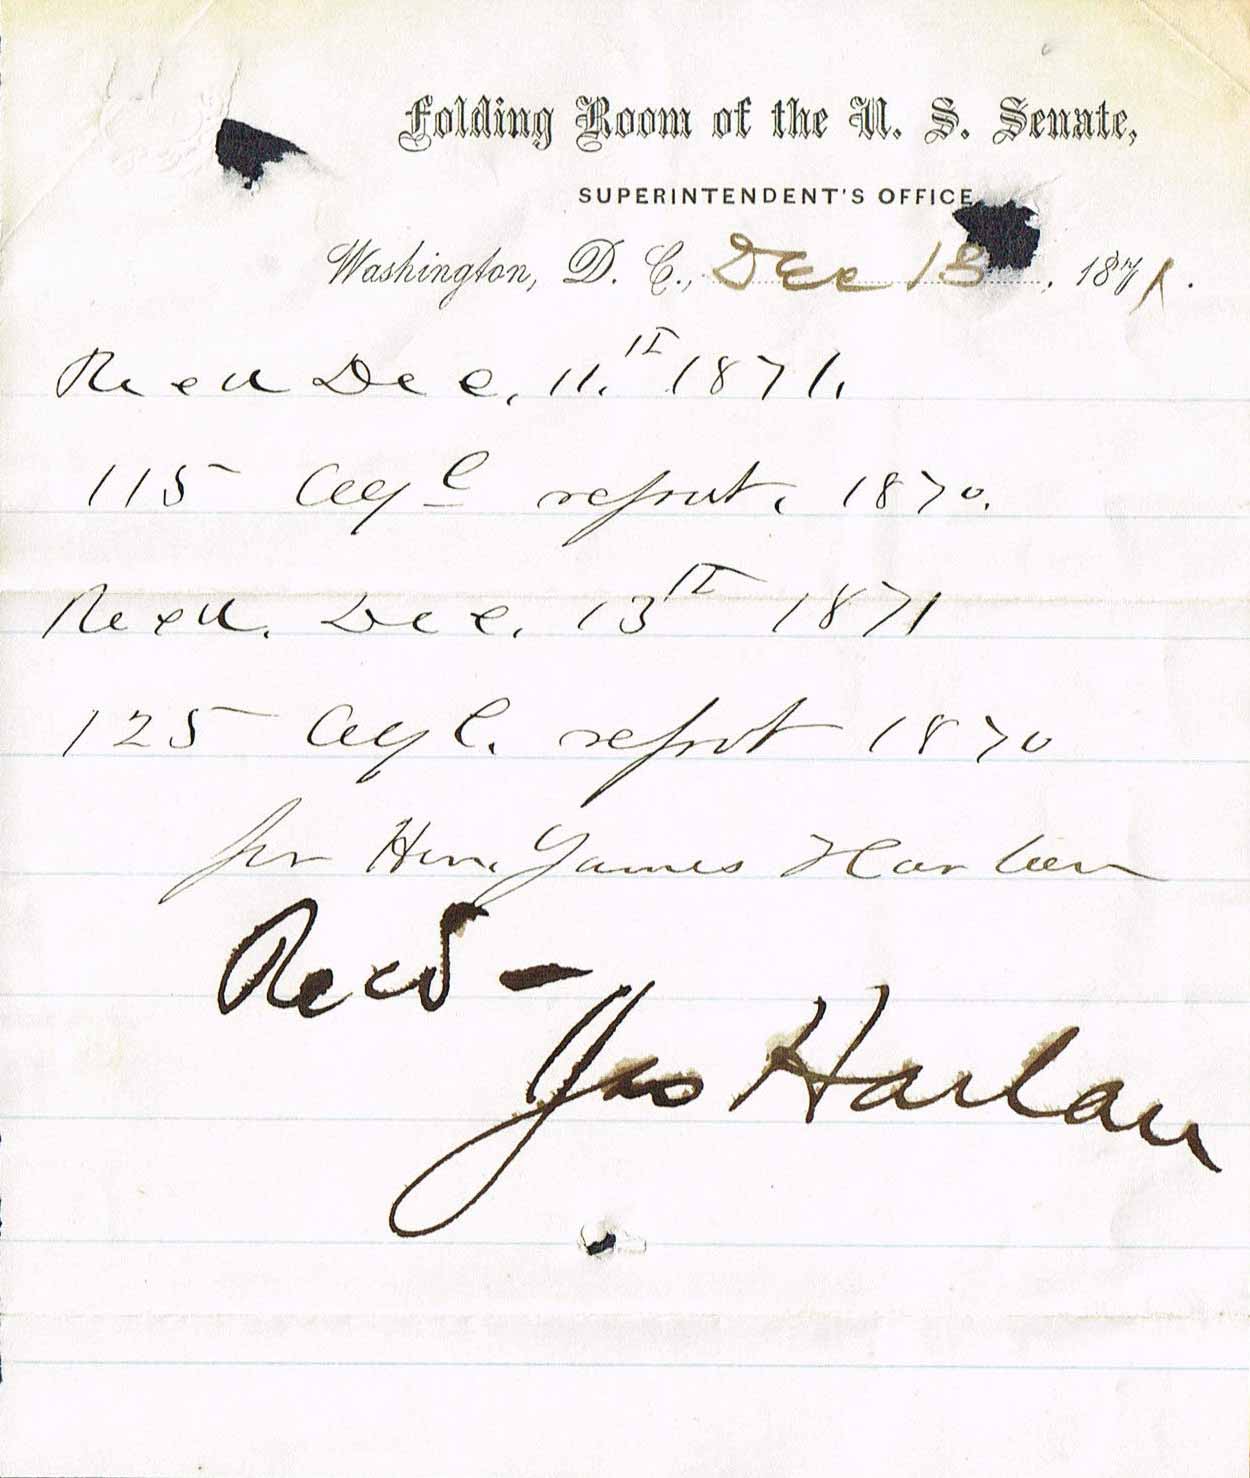 Folding Room of the U. S. Senate,
SUPERINTENDENT'S OFFICE
Washington, D. C., Dec 13, 1871.
Recd Dec. 11.th 1871.
115 Agl report. 1870.
Recd. Dec. 13th 1871
125 Agl. report 1870
for Hon. James Harlan
Recd -
Jas Harlan